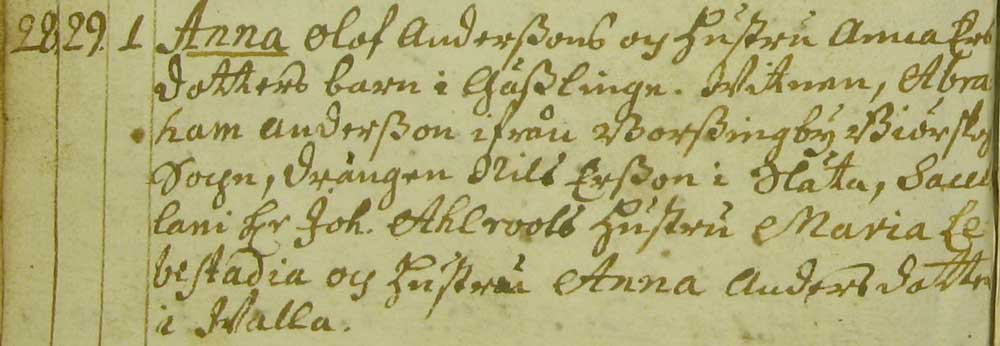 28, 29. 1 Anna Olof Anderßons och Hustru Anna Ers
dotters barn i Gäßlinge. Vitnen, Abra
ham Anderßon ifrån Worßingby Biörskog
Sochn, drängen Nils Erßon i Släta, Sacel
lani Hr Joh. Ahlroots Hustru Maria Le
bestadia och Hustru Anna Andersdotter
i Walla.